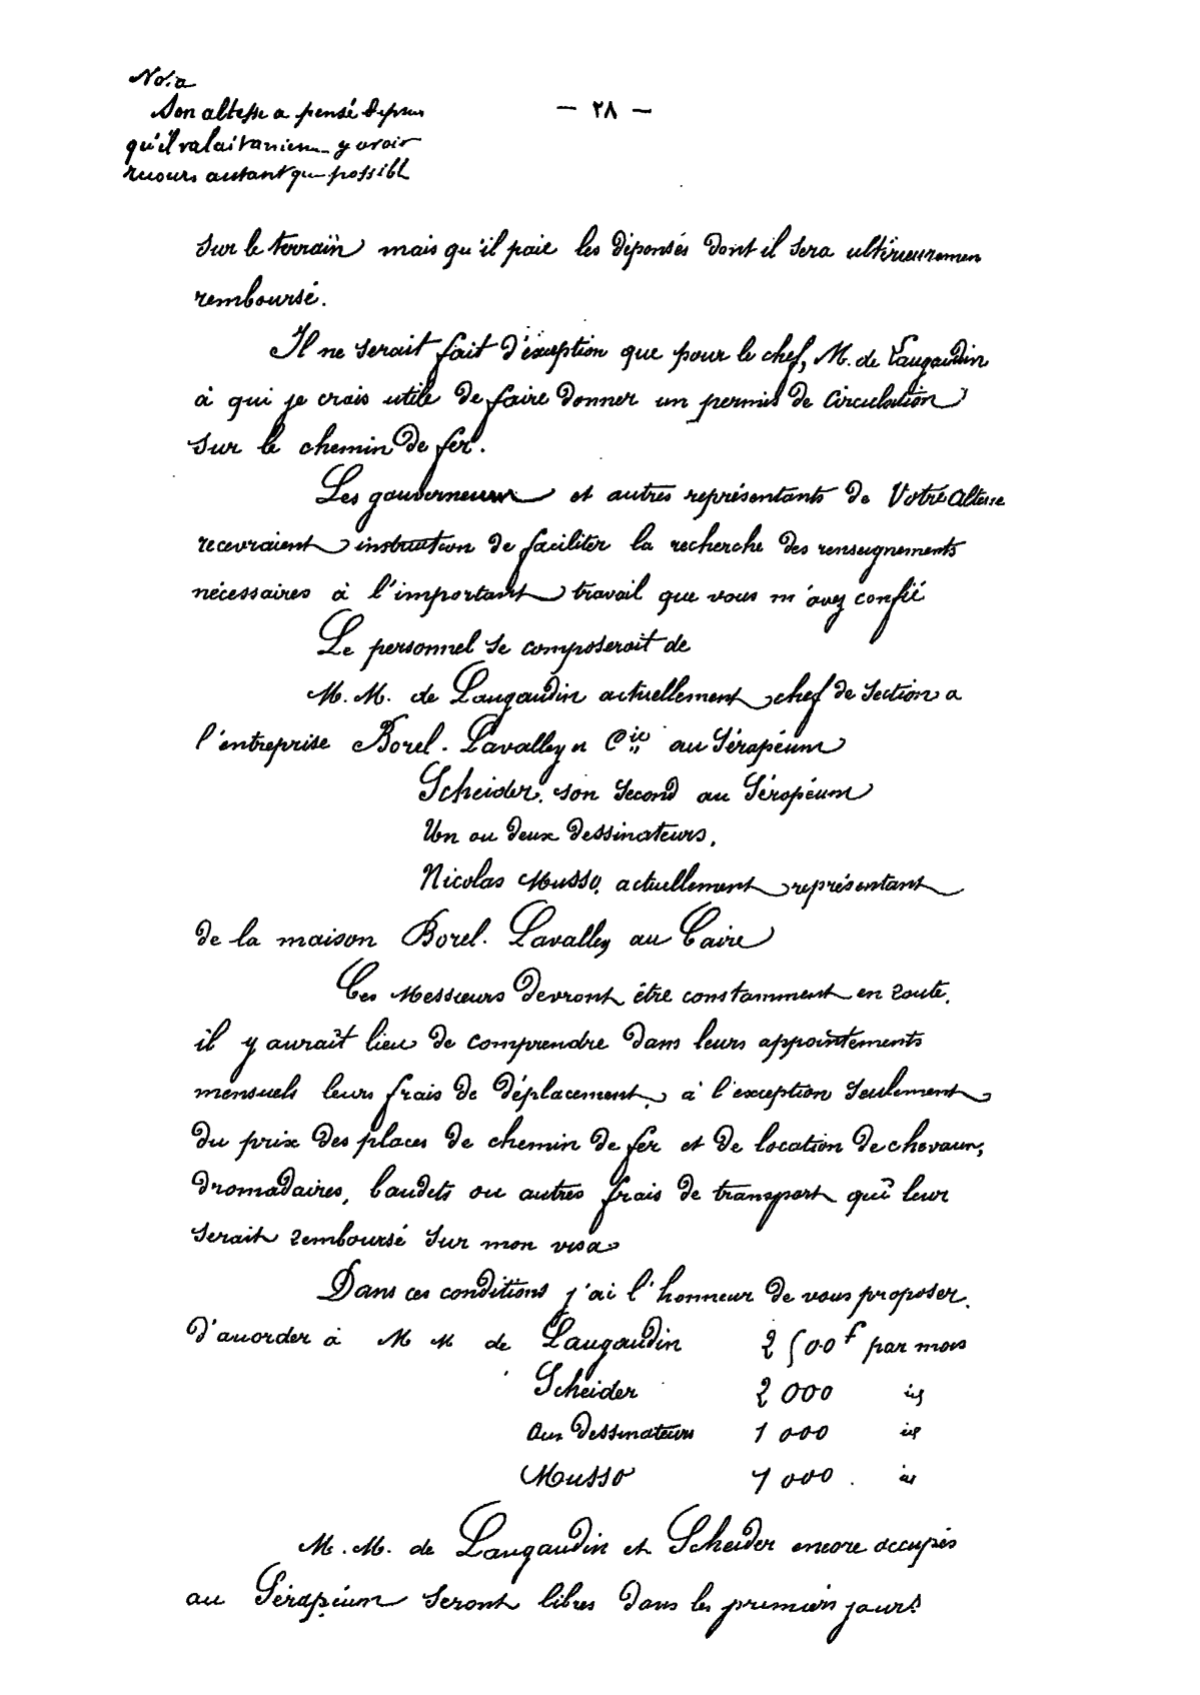 Nota
Son altesse a pensé depuis
qu'il valait mieux y avoir
recours autant que possible
— ٢٨ —
sur le terrain mais qu'il paie les dépensés dont il sera ultérieuremen
remboursé.
Il ne serait fait d'éxception que pour le chef, M. de Laugaudin
à qui je crois utile de faire donner un permis de circulation
sur le chemin de fer.
Les gouverneurs et autres représentants de Votre Altesse
recevraient instruction de faciliter la recherche des renseignements
nécessaires à l'important travail que vous m'avez confié
Le personnel se composerait de
M. M. de Laugaudin actuellement chef de section a
l'entreprise Borel. Lavalley et Cie au Sérapéum
Scheider, son second au Sérapéum
Un ou deux dessinateurs,
Nicolas Musso, actuellement représentant
de la maison Borel. Lavalley au Caire
Ces Messieurs devront être constamment en route,
il y aurait lieu de comprendre dans leurs appointements
mensuels leurs frais de déplacement, à l'exception seulement
du prix des places de chemin de fer et de location de chevaux,
dromadaires, baudets ou autres frais de transport qui leur
serait remboursé sur mon visa
Dans ces conditions j'ai l'honneur de vous proposer
d'accorder à M M de Laugaudin 2 500 f par mois
Scheider 2 000 id
Aux dessinateurs 1 000 id
Musso 1 000 id
M. M. de Laugaudin et Scheider encore occupés
au Sérapéum seront libres dans les premiers jours